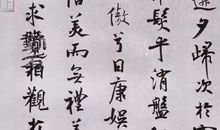 遷夕歸次於
髮乎洧盤
傲兮日康娛
信美而無禮
求覽相觀於